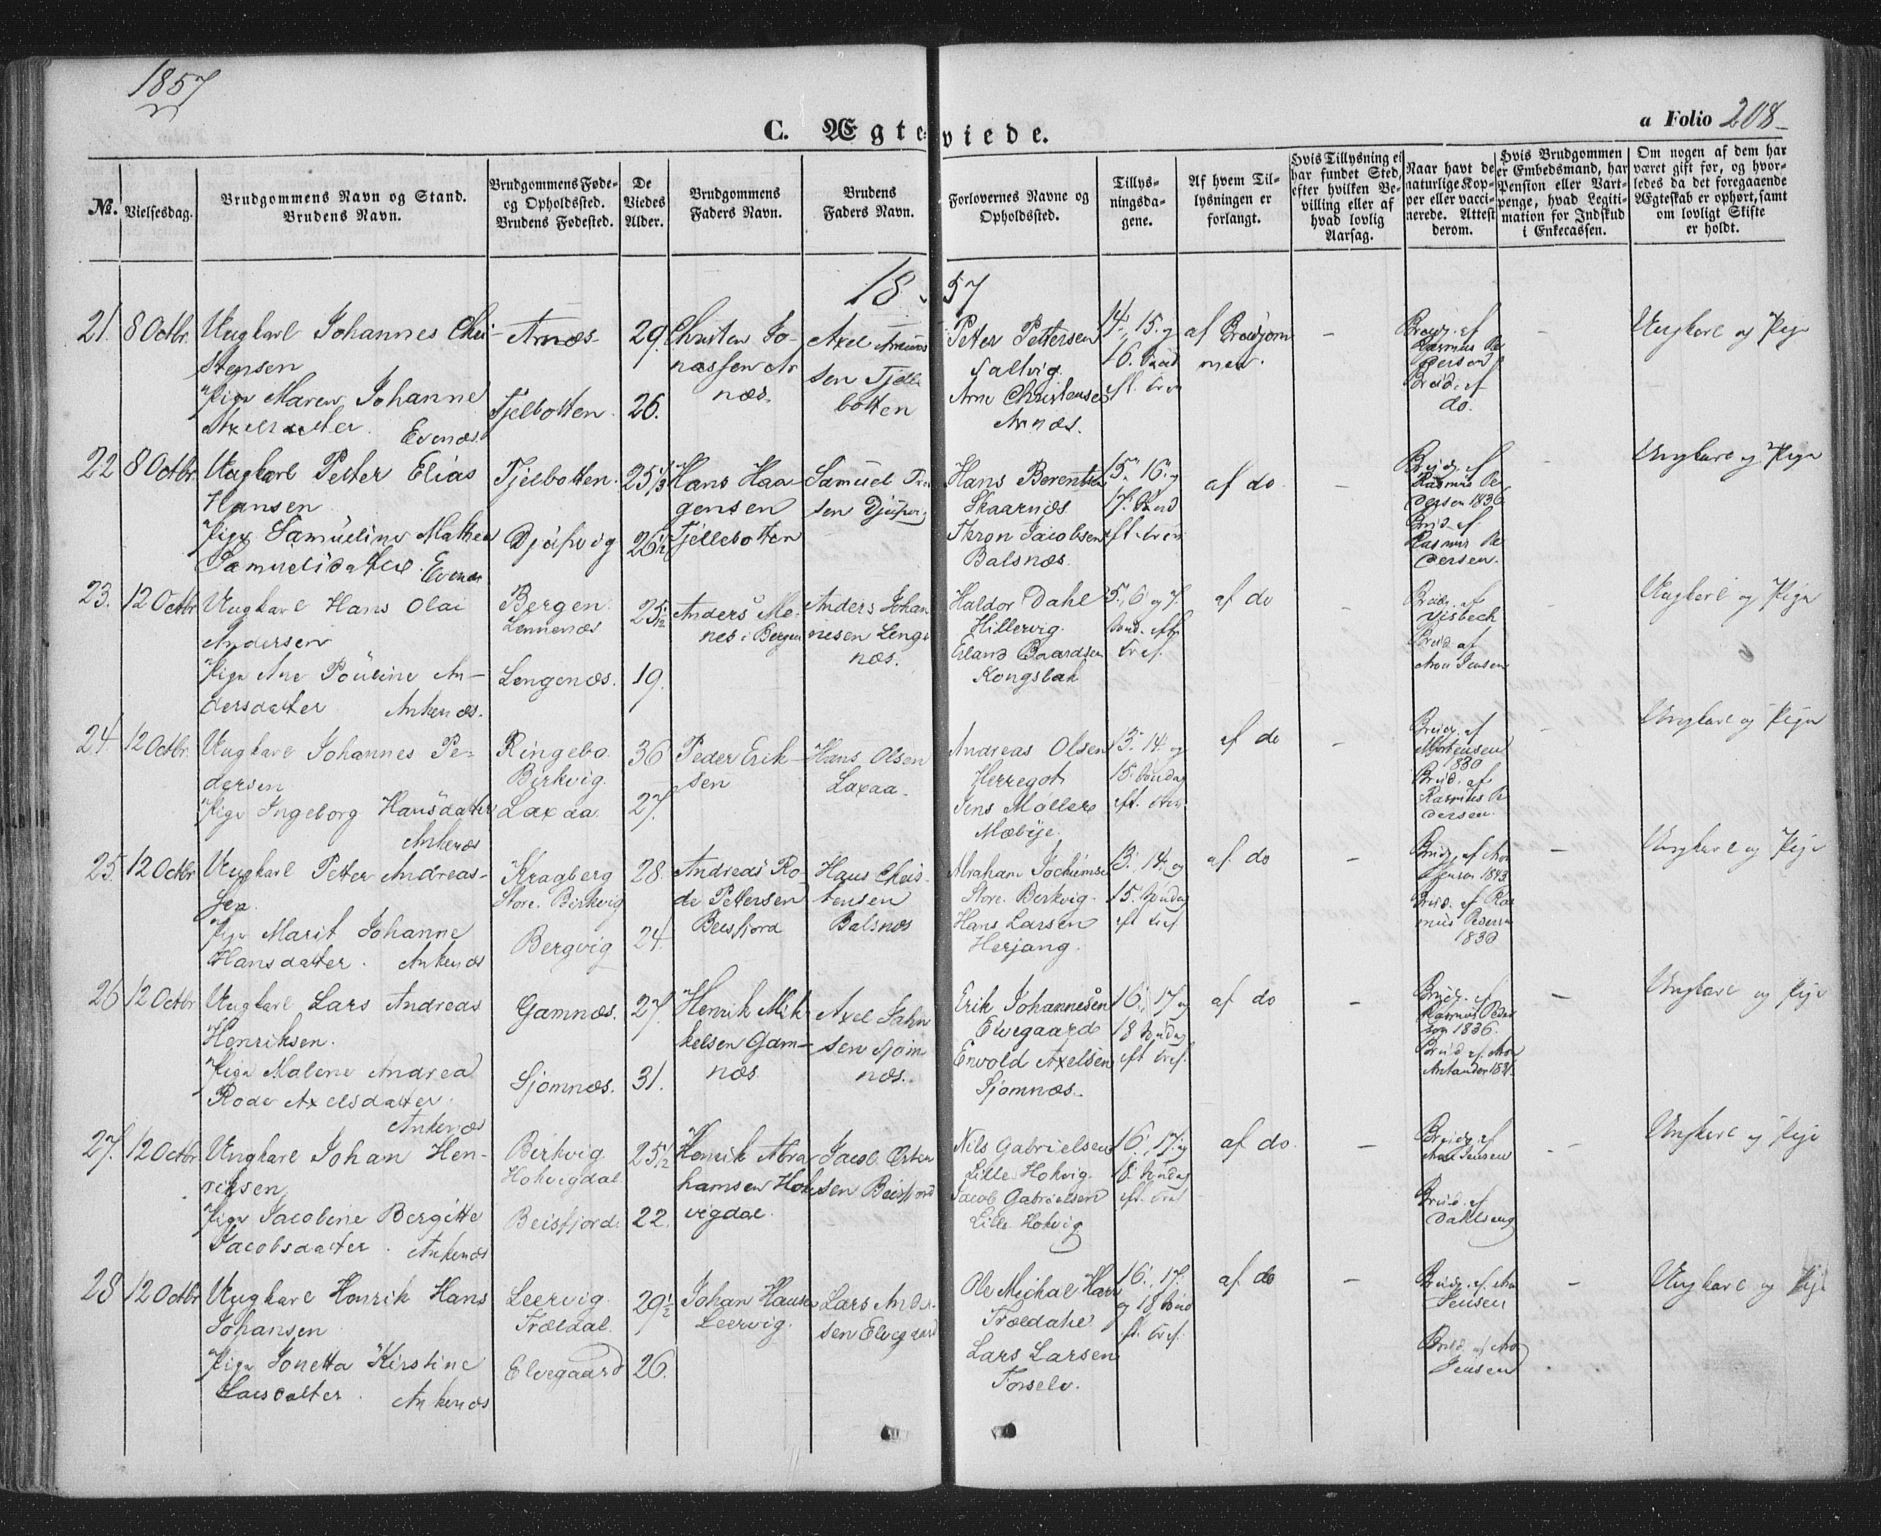 1857
C. Ægteviede.
a Folio 208
№.
Vielsesdag.
Brudgommens Navn og Stand.
Brudens Navn.
Brudgommens Føde-
og Opholdssted.
Brudens Fødested.
De
Viedes
Alder.
Brudgommens
Faders Navn.
Brudens
Faders Navn.
Forlovernes Navne og
Opholdssted.
Tillys-
ningsda-
gene.
Af hvem Til-
lysningen er
forlangt.
Hvis Tillysning ei
har fundet Sted,
efter hvilken Be-
villing eller af
hvad lovlig
Aarsag.
Naar havt de
naturlige Kop-
per eller vacci-
nerede. Attest
derom.
Hvis Brudgommen
er Embedsmand, har
Pension eller Vart-
penge, hvad Legiti-
mation for Indskud
i Enkecassen.
Om nogen af dem har
været gift før, og hvor-
ledes da det foregaaende
Ægteskab er ophørt, samt
om lovligt Skifte
er holdt.
1857
21. 8 Octbr.
Ungkarl Johannes Chri-
stensen
Pige Maren Johanne
Axelsdatter. Evenæs.
Arnæs
Tjelbotten.
29.
26.
Christen Jo-
nassen Ar
næs.
Axel
sen Tjelle
botten
Peter Pettersen
Arne Christensen
Arnæs.
14, 15. og
16. Sønd
eft. tref
af Brudgom
men.
Brudg. af
Rasmus Pe
dersen
Brud. af
do.
Ungkarl og Pige
22 8 Octbr.
Ungkarl Petter Elias
Hansen
Pige Samueline Mathea
Samuelsdatter. Evenæs
Tjelbotten.
Djupvig
25 1/3
26 1/2
Hans Haa
gensen
Tjellebotten
Samuel
sen Djupvig
Hans Berentsen
Skaarnæs
Thron Jacobsen
Balsnæs.
15. 16. og
17. Sønd
eft. tref
af do
Brudg. af
Rasmus Pe
dersen 1836
Brud. af
Rasmus Pe
dersen.
Ungkarl og Pige
23. 12 Octbr
Ungkarl Hans Olai
Andersen
Pige Ane Pouline An-
dersdatter Ankenæs.
Bergen.
Lennenæs
Lengenæs.
25 1/2
19.
Anders Me-
nes i Bergen
Anders Johan
nesen Lenge
næs.
Haldor Dahl
Hillervig.
Erland Baardsen
Kongsbak
5, 6 og 7.
Sønd. eft.
tref.
af do
Brudg. af
Visbech
Brud af
Moe Jensen
Ungkarl og Pige
24 12 Octbr.
Ungkarl Johannes Pe-
dersen
Pige Ingeborg Hansdatter
Ankenæs
Ringebo
Birkvig.
Laxaa
36
27.
Peder Erik-
sen
Hans Olsen
Laxaa.
Andreas Olsen
Herregot
Jens Møllers
Mæbye.
13. 14. og
15. Søndag
eft. tref.
af do
Brudg. af
Mortensen
1830
Brud. af
Rasmus Pe
dersen.
Ungkarl og Pige
25. 12 Octbr
Ungkarl Petter Andreas-
sen.
Pige Marit Johanne
Hansdatter. Ankenæs
Kragberg
Store. Birkvig
Bergvig
28.
24.
Andreas Ro-
de Pettersen
Beisfjord
Hans Chris-
tensen
Balsnæs
Abraham Jochumsen
Store. Berkvig.
Hans Larsen
Herjang.
13. 14. og
15. Søndag
eft tref
af do
Brudg. af Moe
Jensen 1843
Brud. af Ras
mus Pedersen
1830
Ungkarl og Pige
26 12 Octbr
Ungkarl Lars Andreas
Henriksen.
Pige Malene Andrea
Rode Axelsdatter.
Ankenæs
Gamnæs.
Sjomnæs.
27.
31.
Henrik Mik
kelsen Gam-
næs
Axel Jahn
sen Sjom
næs.
Erik Johannesen
Elvegaard
Envold Axelsen
Sjomnæs.
16. 17 og
18 Søndag
eft tref.
af do
Brudg. af
Rasmus Peder
sen 1836.
Brud af Moe
Ungkarl og Pige
27. 12 Octbr.
Ungkarl Johan Hen-
riksen
Pige Jacobine Bergitte
Jacobsdatter. Ankenæs
Birkvig
Hokvigdal.
Beisfjord.
25 1/2
22.
Henrik Abra
hamsen Hok
vigdal.
Jacob Osten
sen Beisfjord
Nils Gabrielsen
Lille Hokvig.
Jacob Gabrielsen
Lille Hokvig
16. 17. og
18. Søndag
eft. tref
af do.
Brudg. af
Moe Jensen
Brud. af
Dahlseng
Ungkarl og Pige
28 12 Octbr
Ungkarl Henrik Hans
Johansen
Pige Jonetta Kirstine
Larsdatter. Ankenæs
Leervig.
Trældal.
Elvegaard
29 1/2
26.
Johan Hansen
Leervig.
Lars Ander-
sen Elvegaard
Ole Michal Hans
Trældahl
Lars Larsen
Forselv.
16. 17.
og 18 Sønd
eft. tref.
af do
Brudg. af Moe
Jensen
Brud. af Moe
Jensen
Ungkarl og Pige